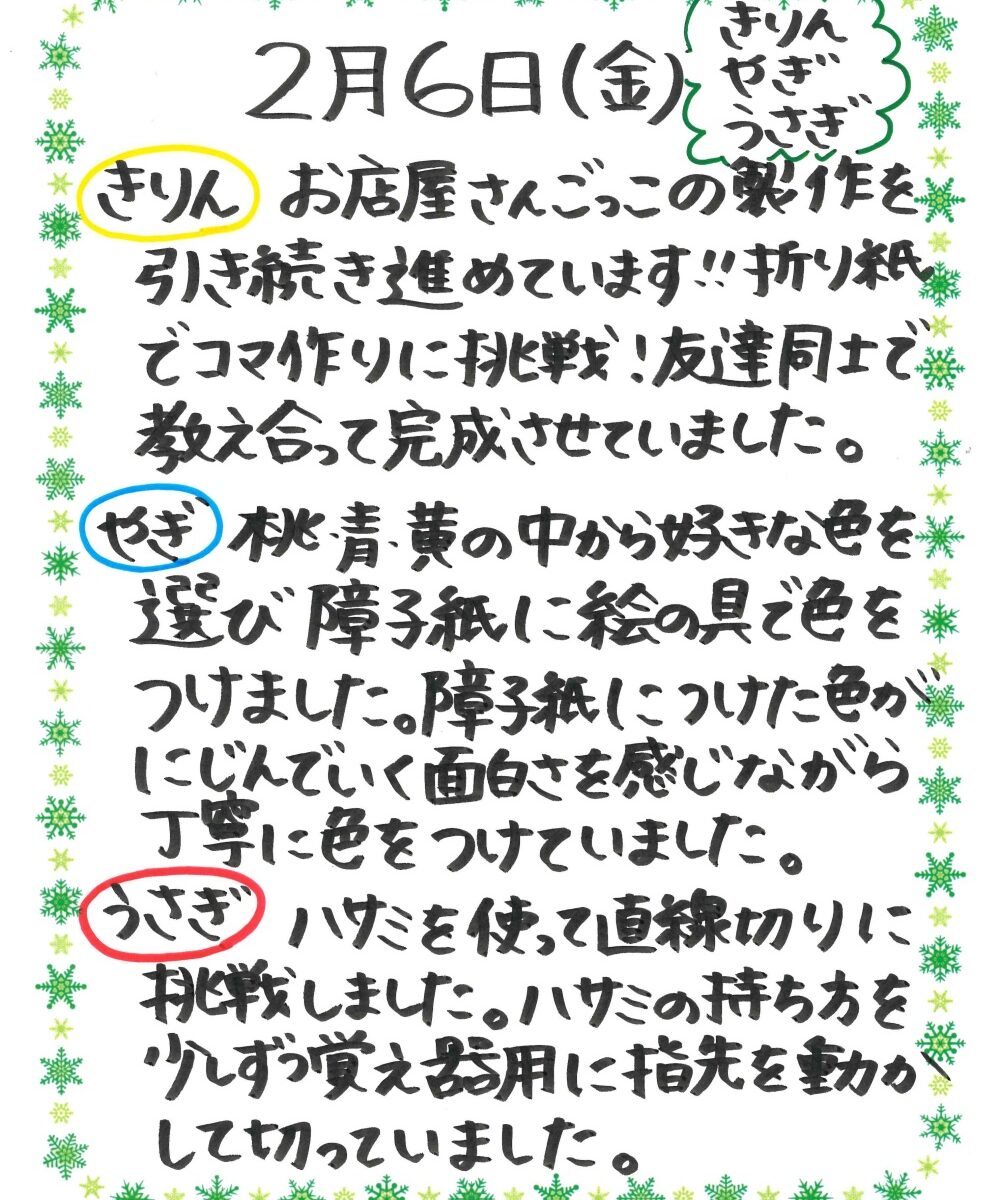 2月6日(金)
きりん
やぎ
うさぎ
きりん お店屋さんごっこの製作を
引き続き進めています!!折り紙
でコマ作りに挑戦!友達同士で
教え合って完成させていました。
やぎ 桃・青・黄の中から好きな色を
選び障子紙に絵の具で色を
つけました。障子紙につけた色が
にじんでいく面白さを感じながら
丁寧に色をつけていました。
うさぎ ハサミを使って直線切りに
挑戦しました。ハサミの持ち方を
少しずつ覚え器用に指先を動か
して切っていました。